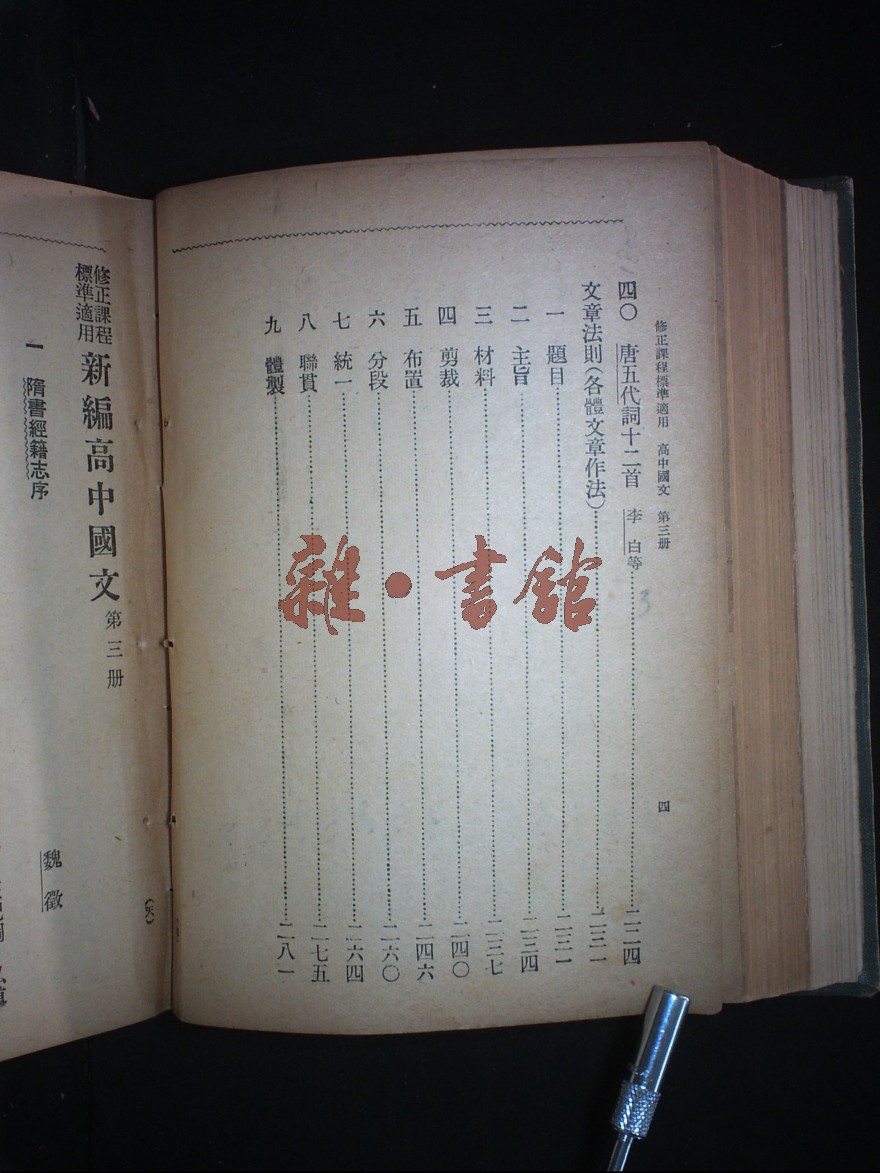 修正課程標準適用 高中國文 第三册
四
四〇 唐五代詞十二首 李白等 二二四
文章法則(各體文章作法) 二三一
一 題目 二三一
二 主旨 二三四
三 材料 二三七
四 剪裁 二四〇
五 布置 二四六
六 分段 二六〇
七 統一 二六四
八 聯貫 二七五
九 體製 二八一
雜·書館
3
修正課程
標準適用
新編高中國文 第三册
一 隋書經籍志序
魏徵